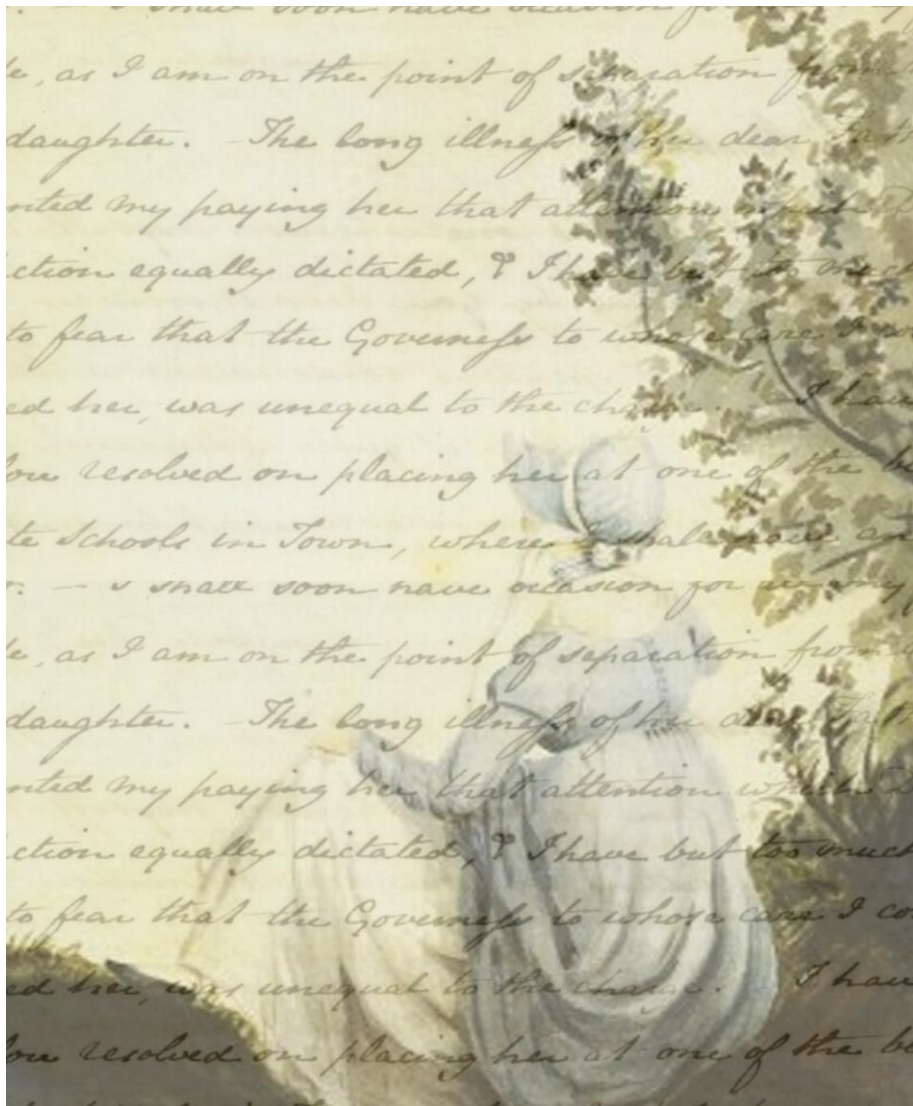 I shall soon have occasion for
le, as I am on the point of separation from
daughter. The long illness of her dear
nted my paying her that attention which
ction equally dictated, & I have but too much
to fear that the Governess to whose care I co
ed her, was unequal to the charge. I have
fore resolved on placing her at one of the be
te Schools in Town, where I shall have an
r. — I shall soon have occasion for all my
le, as I am on the point of separation from
daughter. The long illness of her dear
nted my paying her that attention which
ction equally dictated, & I have but too much
to fear that the Governess to whose care I co
ed her, was unequal to the charge. I have
fore resolved on placing her at one of the be